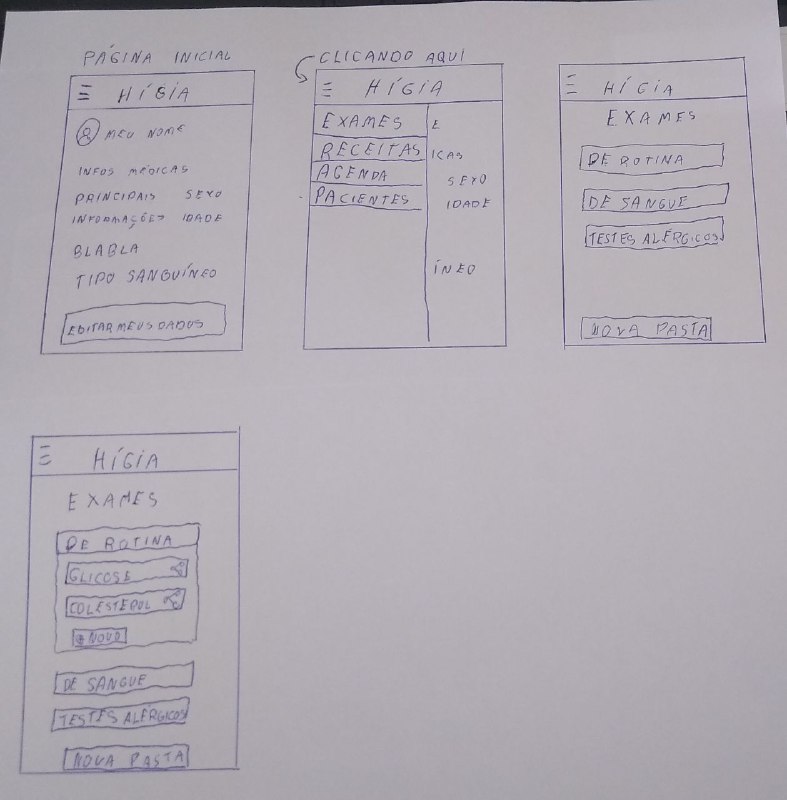 PÁGINA INICIAL
HÍGIA
MEU NOME
INFOS MÉDICAS
PRINCIPAIS SEXO
INFORMAÇÕES IDADE
BLABLA
TIPO SANGUÍNEO
EDITAR MEUS DADOS
CLICANDO AQUI
HÍGIA
EXAMES E
RECEITAS ICAS
AGENDA SEXO
PACIENTES IDADE
ÍNEO
HÍGIA
EXAMES
DE ROTINA
DE SANGUE
TESTES ALÉRGICOS
NOVA PASTA
HÍGIA
EXAMES
DE ROTINA
GLICOSE
COLESTEROL
+ NOVO
DE SANGUE
TESTES ALÉRGICOS
NOVA PASTA